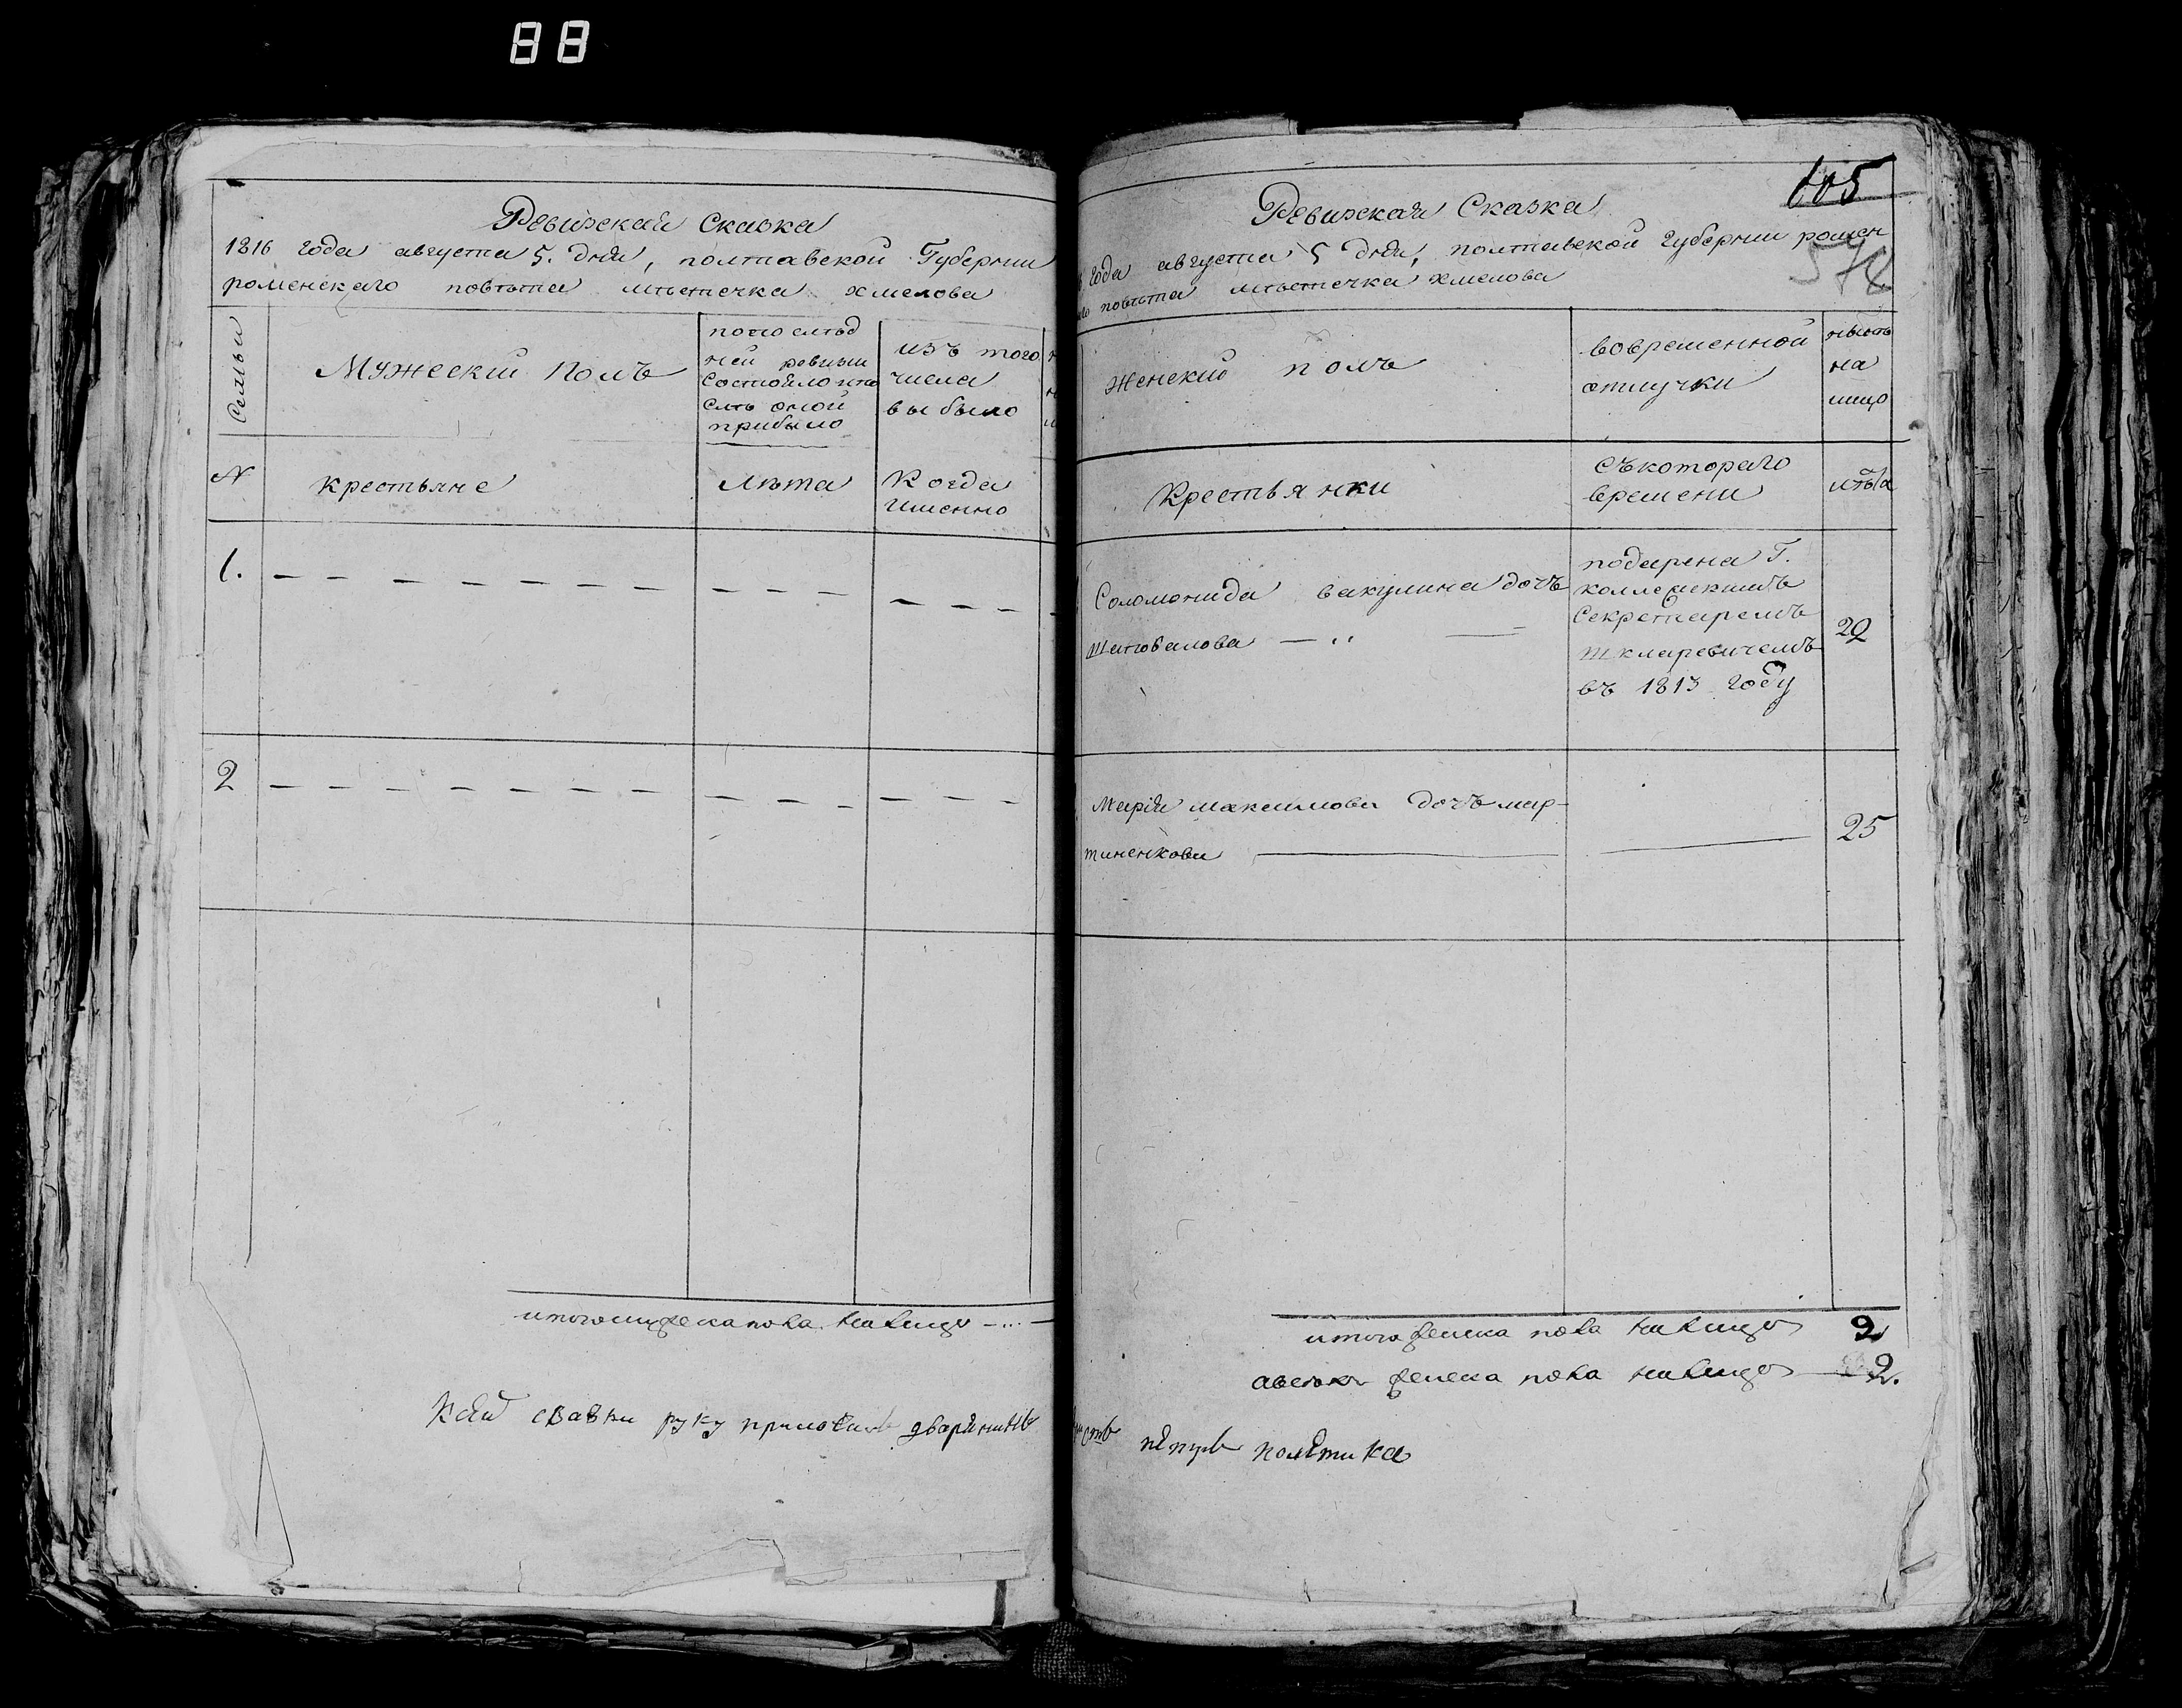 88
Ревизская Сказка
1816 года августа 5. дня, полтавской Губернии
роменскаго повѣта мѣстечка хмелова
Семьи
Мужеский Полъ
попослѣд
ней ревизии
Состояло ипо
слѣ оной
прибыло
изъ того
числа
выбыло
N
крестьяне
лѣта
Когда
именно
1.
2
итого мужеска пола налицо
Ксей сказки руку приложилъ дворянинъ
605
578
Ревизская Сказка
года августа 5 дня, полтавской губернии ромен
повѣта мѣстечка хмелова
Женский полъ
вовременной
отлучки
нынѣ
на
лицо
Крестьянки
Съкотораго
времени
лѣта
Соломонида вакулина дочь
Шаповалова
подарена Г.
Секретаремъ
въ 1813 году
29
Марія максимова дочь мар-
тиненкова
25
итого женска пола налицо 2
авсего женска пола налицо 2.
петръ полетика